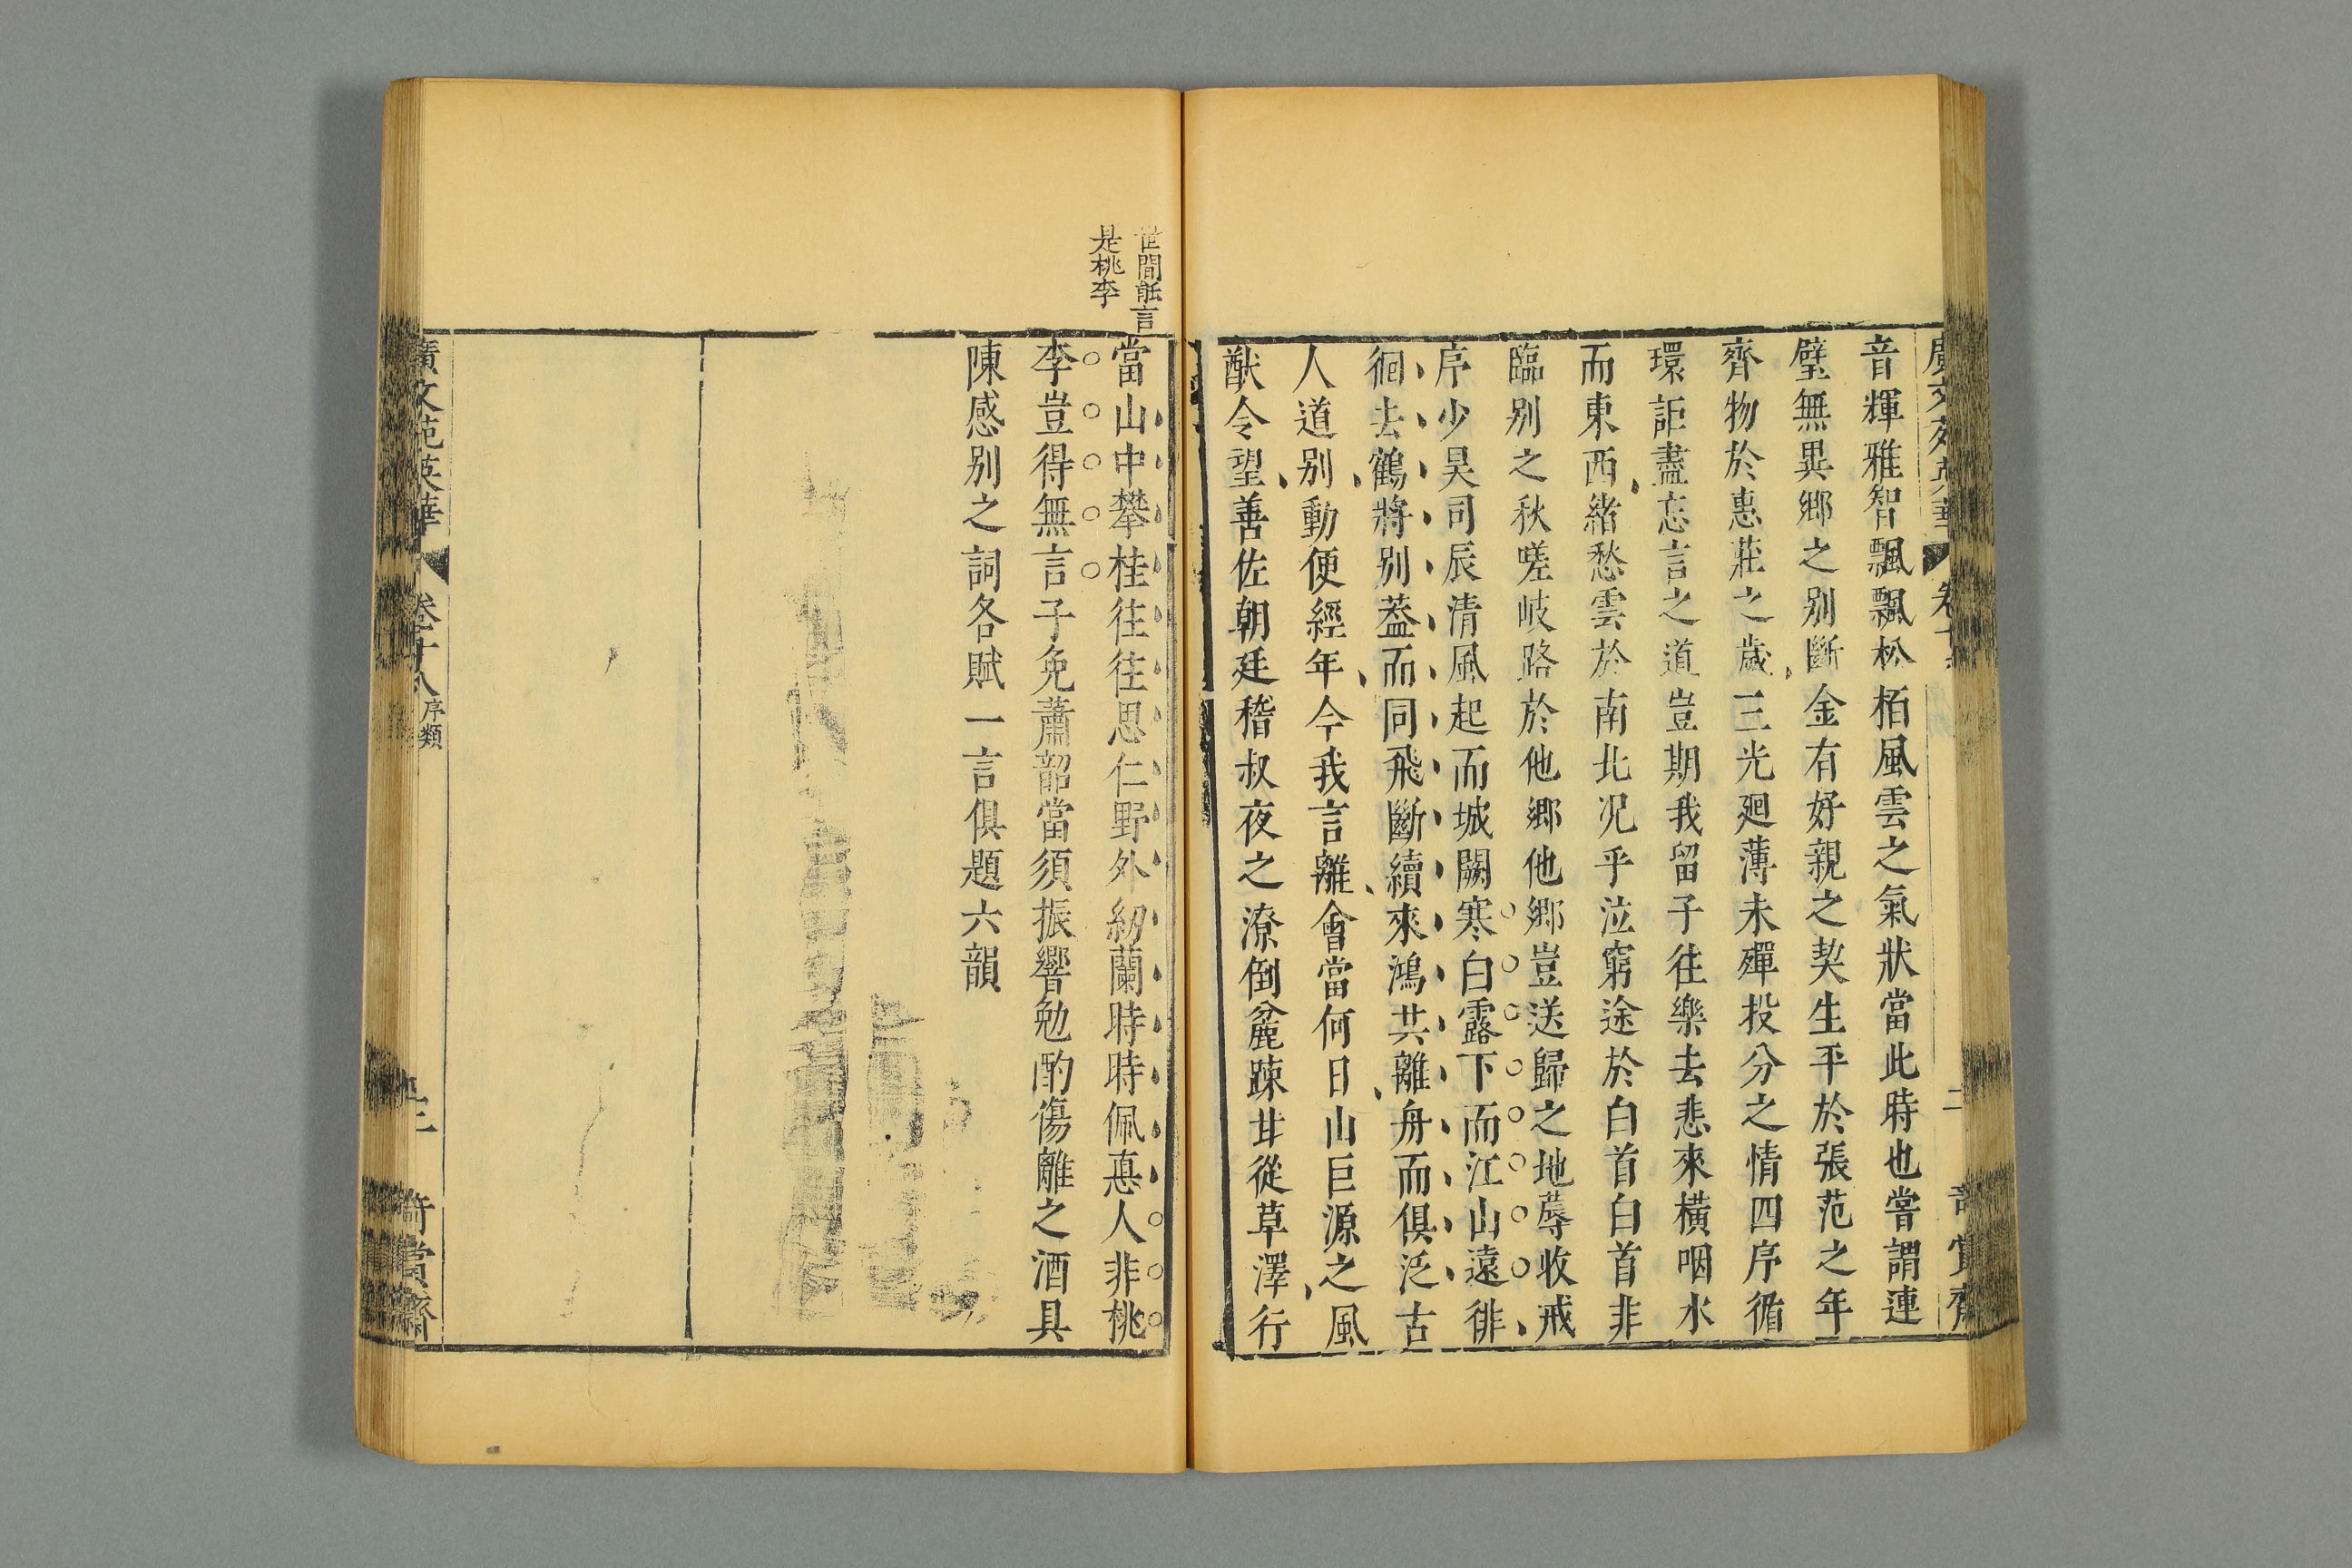 音輝雅智飄飄松栢風雲之氣狀當此時也嘗謂連
璧無異鄉之别斷金有好親之契生平於張范之年
齊物於惠莊之歲三光廻薄未殫投分之情四序循
環詎盡忘言之道豈期我留子往樂去悲來橫咽水
而東西緒愁雲於南北况乎泣窮途於白首白首非
臨别之秋嗟岐路於他鄉他鄉豈送歸之地蓐收戒
序少昊司辰清風起而城闕寒白露下而江山遠徘
徊去鶴將别葢而同飛斷續來鴻共離舟而俱泛古
人道别動便經年今我言離會當何日山巨源之風
猷令望善佐朝廷稽叔夜之潦倒麄踈甘從草澤行
世間能言
是桃李
當山中攀桂往往思仁野外紉蘭時時佩悳人非桃
李豈得無言子免蕭韶當須振響勉酌傷離之酒具
陳感别之詞各賦一言俱題六韻
廣文苑英華 卷二十八 序類 三 奇賞齋